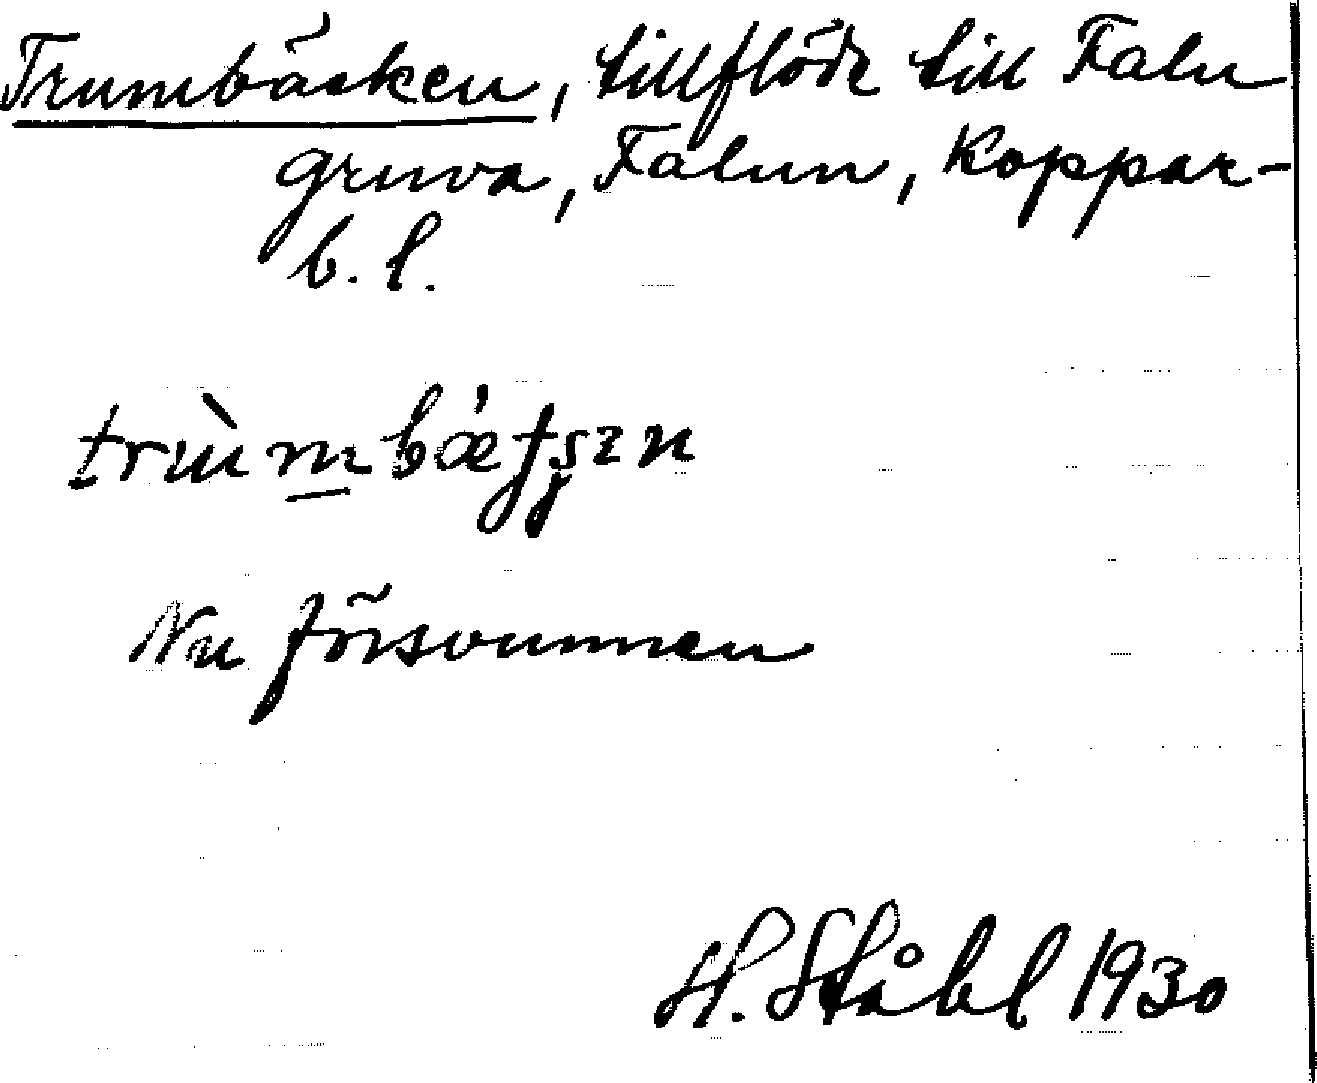 Trumbäcken, tillflöde till Falu
gruva, Falun, Koppar-
b. l.
Nu försvunnen
H. Ståhl 1930